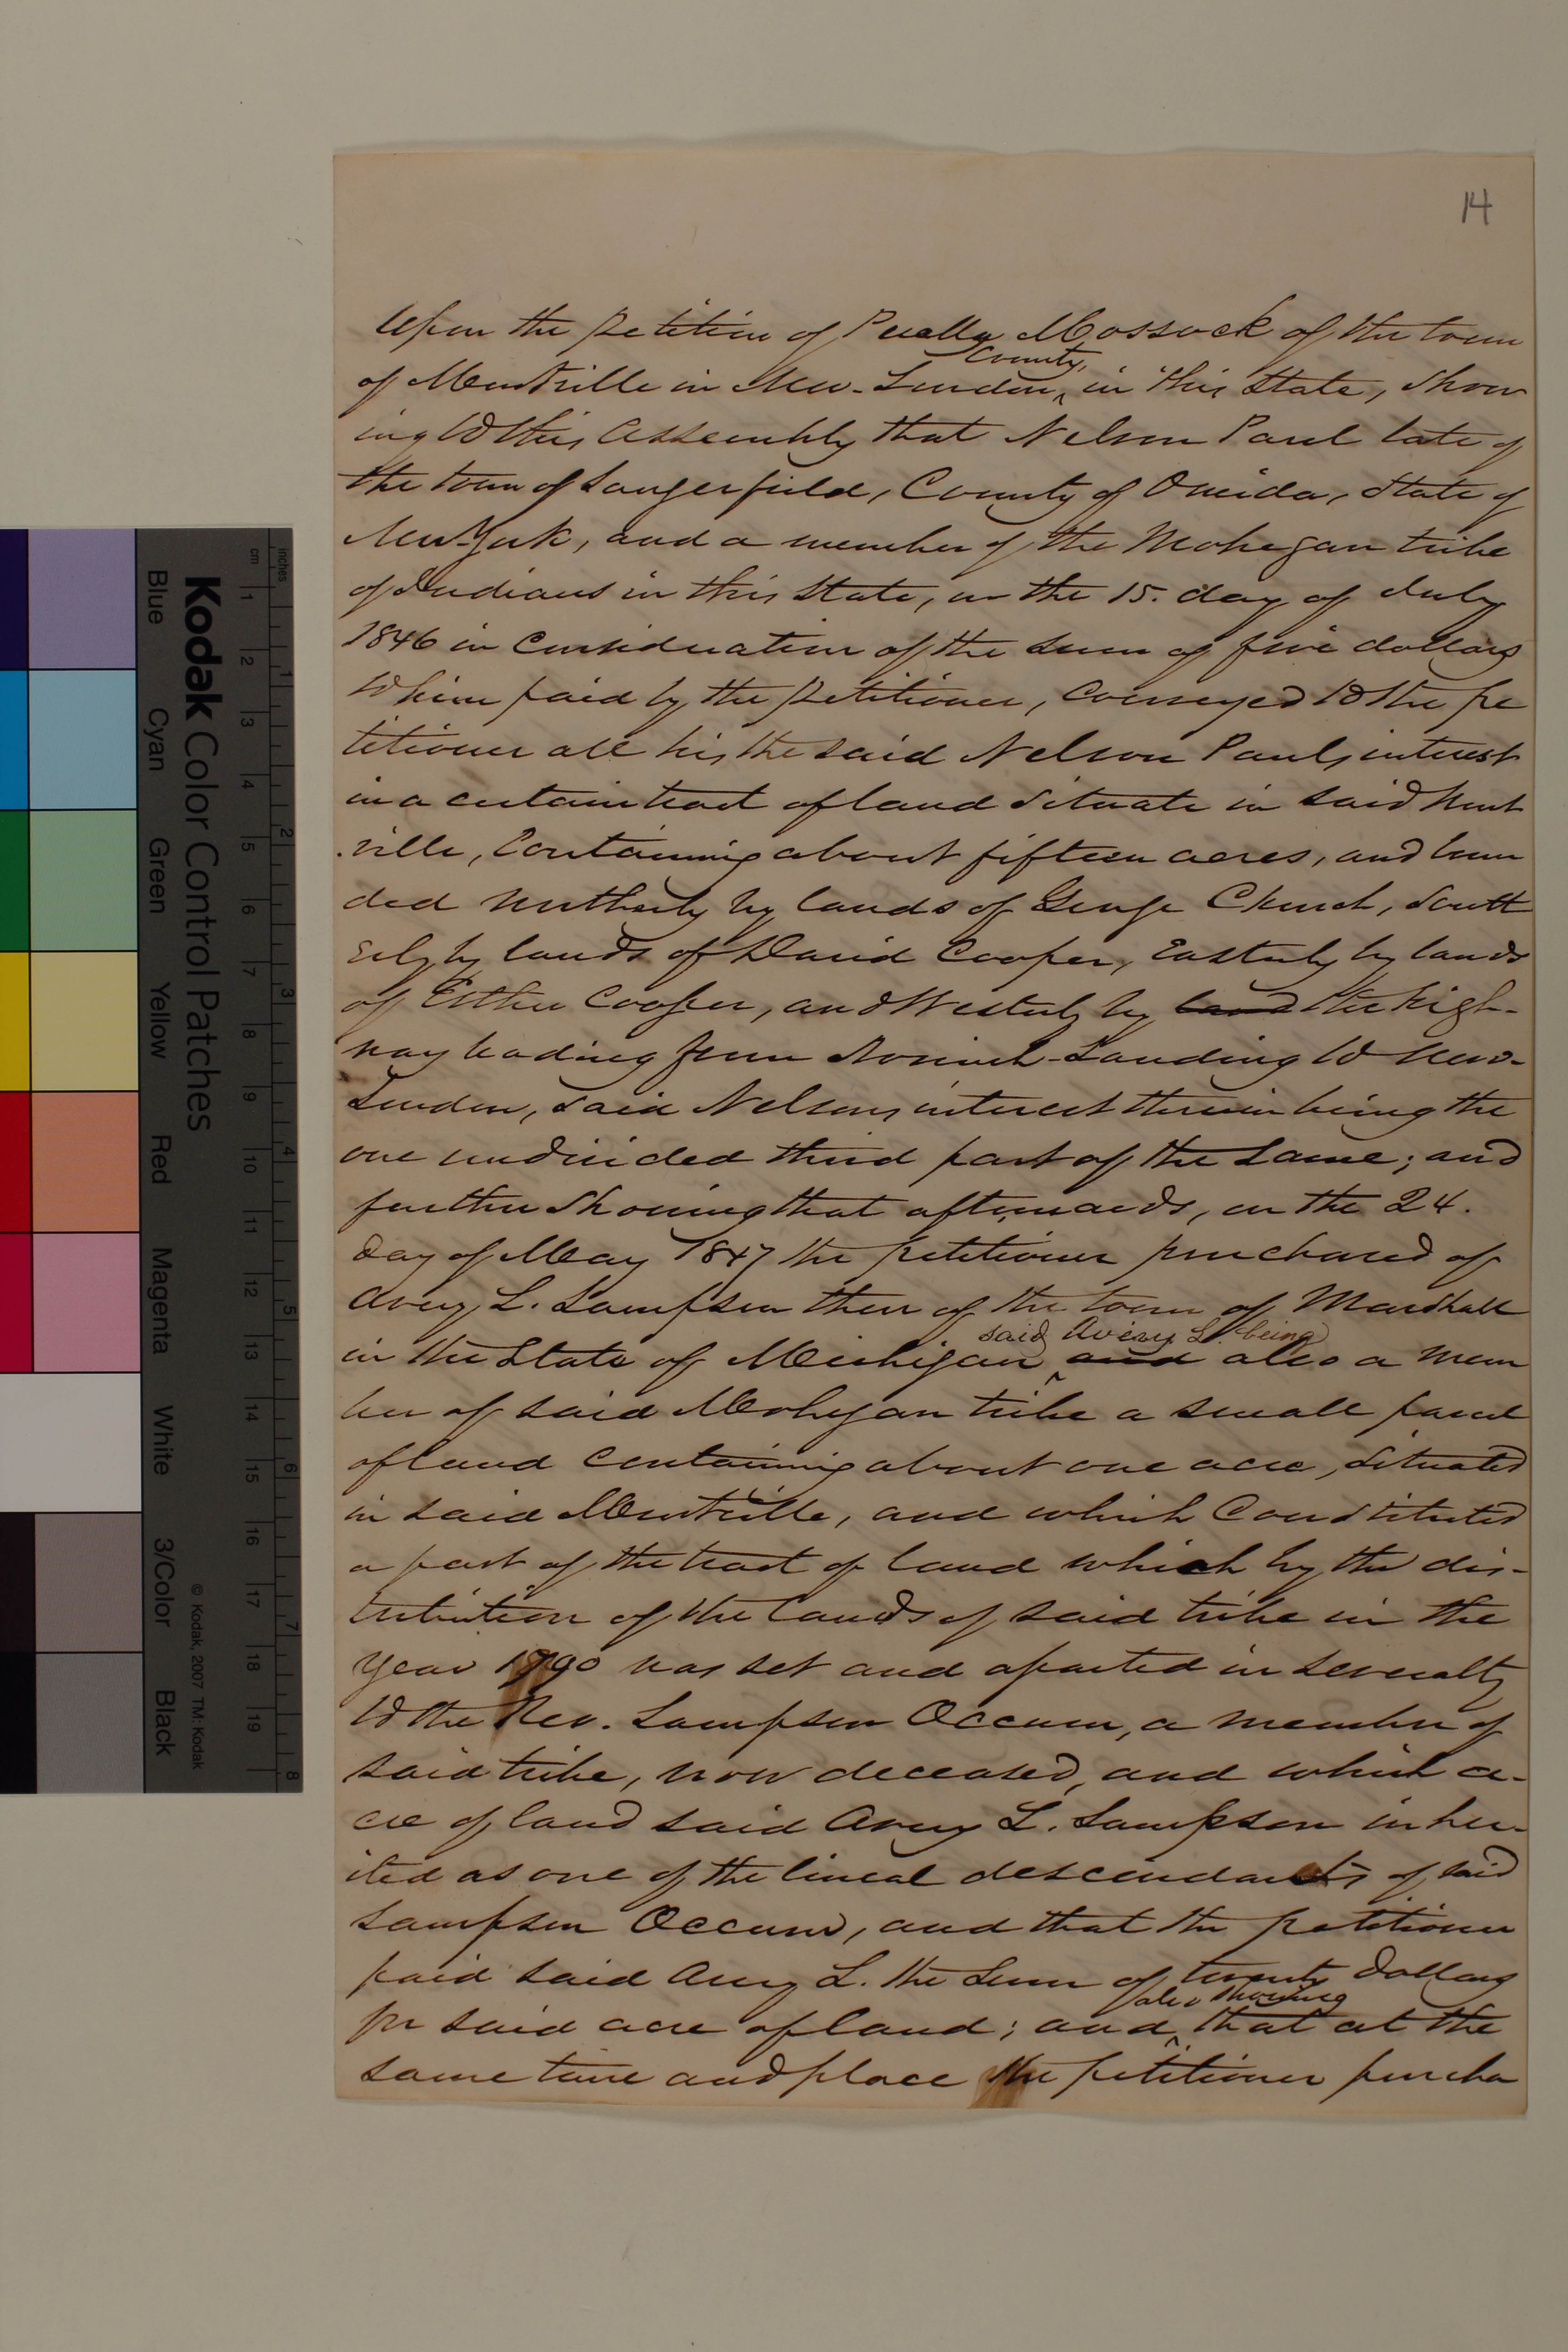 14
Upon the petition of Pually Mossock of the town
of Montville in New-London County, in this State, show
ing to this Assembly that Nelson Paul late of
the town of Sangerfield, County of Oneida, State of
New-York, and a member of the Mohegan tribe
of Indians in this State, on the 15. day of July
1846 in consideration of the sum of five dollars
to him paid by the petitioner, conveyed to the pe
titioner all his the said Nelson Pauls interest
in a certain tract of land situate in said Mont
ville, containing about fifteen acres, and boun
ded northerly by lands of George Church, South
erly by lands of David Cooper, Easterly by lands
of Esther Cooper, and Westerly by land the high-
way leading from Norwich-Landing to New-
London, said Nelsons interest therein being the
one undivided third part of the same; and
further showing that afterwards, on the 24.
day of May 1847 the petitioner purchased of
Avery L. Sampson then of the town of Marshall
in the State of Michigan said Avery L. being and also a mem
ber of said Mohegan tribe a small parcel
of land containing about one acre, situated
in said Montville, and which constituted
a part of the tract of land which by the dis-
tribution of the lands of said tribe in the
year 1790 was set and aparted in severalty
to the Rev. Sampson Occum, a member of
said tribe, now deceased, and which a-
cre of land said Avery L. Sampson inher-
ited as one of the lineal descendants of said
Sampson Occum, and that the petitioner
paid said Avery L. the sum of twenty dollars
for said acre of land; and also showing that at the
same time and place the petitioner purcha
Kodak Color Control Patches
© Kodak, 2007 TM: Kodak
Blue Cyan Green Yellow Red Magenta White 3/Color Black
inches 1 2 3 4 5 6 7 8
cm 1 2 3 4 5 6 7 8 9 10 11 12 13 14 15 16 17 18 19